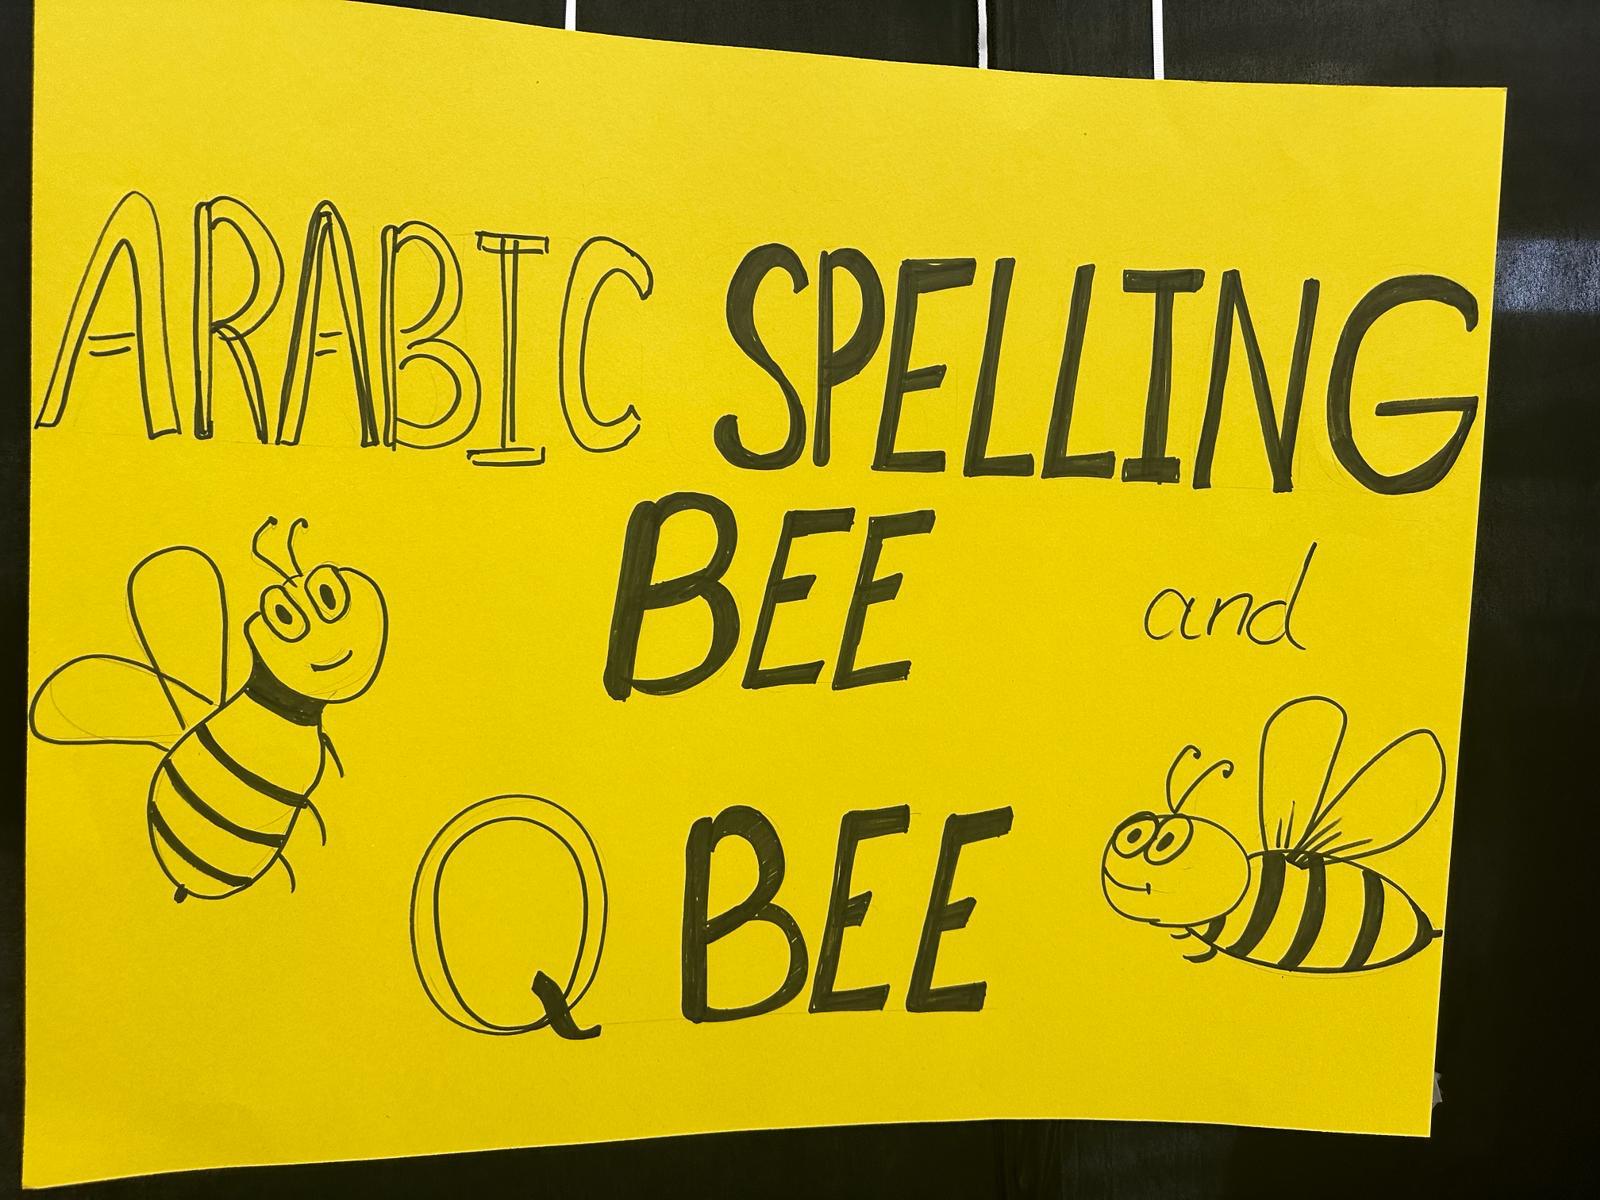 ARABIC SPELLING
BEE and
Q BEE